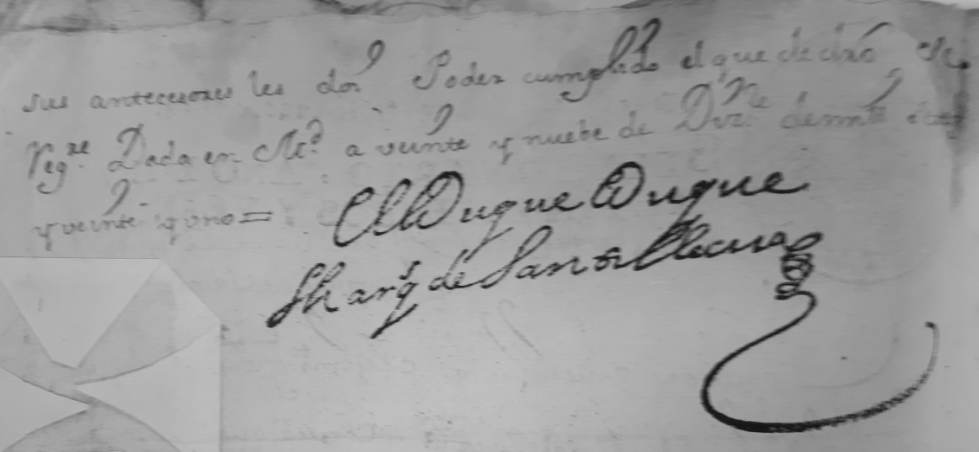 sus antecesores les doy Poder cumplido el que de dro Se
reqre. Dada en Md. a veinte y nuebe de Dizre. de mill
y veinte y uno =
El Duque Duque
Marq de Santa